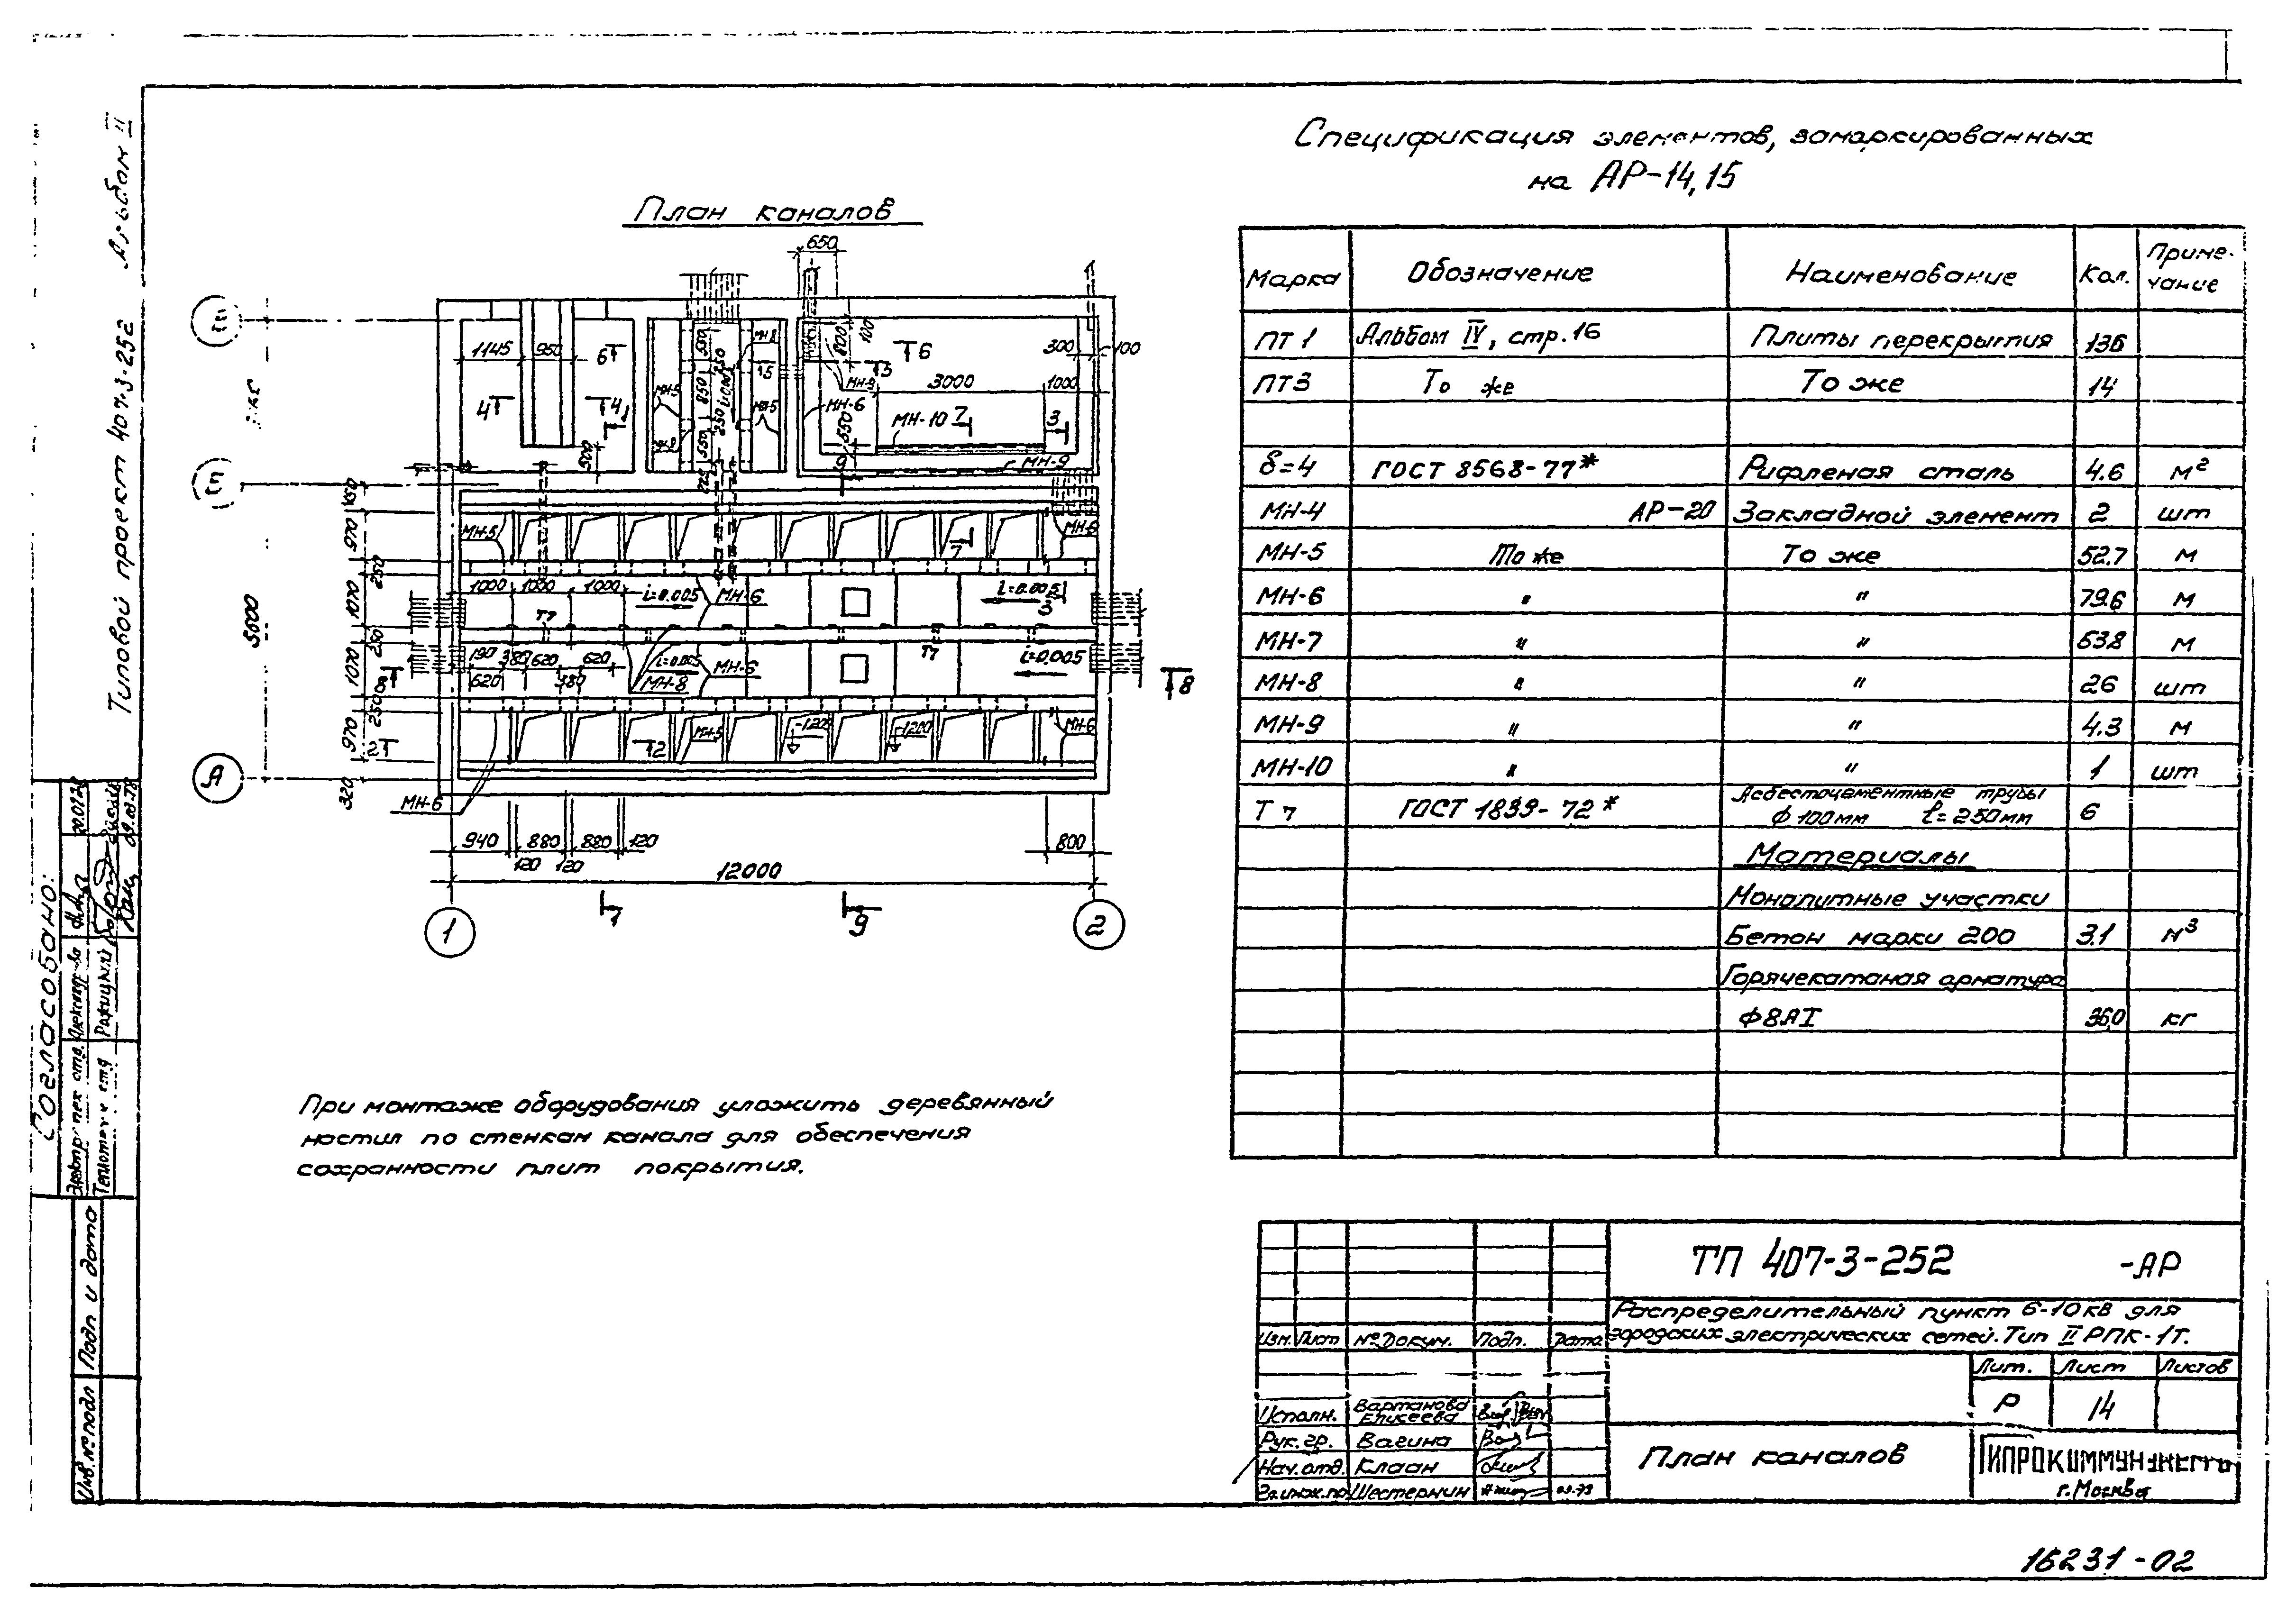 Типовой проект 407-3-252 Альбом II
План каналов
650
1145
950
6
4
4
1
500
МН-5
МН-5
МН-8
550
850
550
250
250
100
6
3
МН-9
МН-6
550
3000
МН-10
7
300
100
1000
3
МН-9
9
Е
А
5600
450
970
250
1070
250
1070
250
970
320
МН-5
МН-6
7
1000
1000
1000
i=0.005
МН-6
i=0.005
3
Т7
Т7
190
380
620
620
620
380
i=0.005
МН-6
МН-8
i=0.005
8
8
2
2
МН-5
-1.200
-1.200
МН-6
МН-6
940
880
880
120
800
120
120
12000
1
9
1
2
При монтаже оборудования уложить деревянный
настил по стенкам канала для обеспечения
сохранности плит покрытия.
Спецификация элементов, замаркированных
на АР-14,15
Марка Обозначение Наименование Кол. Приме-
чание
ПТ 1 Альбом IV, стр.16 Плиты перекрытия 136
ПТ3 То же То же 14
δ=4 ГОСТ 8568-77* Рифленая сталь 4.6 м²
МН-4 АР-20 Закладной элемент 2 шт
МН-5 То же То же 52.7 м
МН-6 " " 79.6 м
МН-7 " " 63.8 м
МН-8 " " 26 шт
МН-9 " " 4.3 м
МН-10 " " 1 шт
Т 7 ГОСТ 1839-72* Асбестоцементные трубы
ф 100мм ℓ=250мм 6
Материалы
Монолитные участки
Бетон марки 200 3.1 м³
Горячекатаная арматура
Ф8АI 36,0 кг
Согласовано:
Подп и дата
Инв.№подл
ТП 407-3-252 -АР
Распределительный пункт 6-10кв для
городских электрических сетей. Тип II РПК-1Т.
Изм. Лист №Докум. Подп. Дата
Лит. Лист Листов
Р 14
Исполн. Вартанова
Елисеева
Рук.гр. Вагина
Нач.отд. Клаан
Гл.инж.пр Шестернин
План каналов
ГИПРОКОММУНЭНЕРГО
г.Москва
16231-02